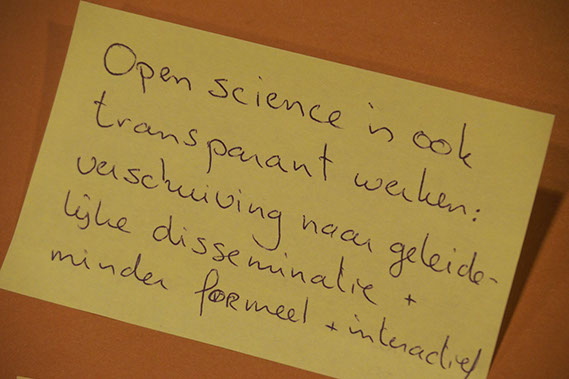 Open science is ook
transparant werken:
verschuiving naar geleide-
lijke disseminatie +
minder formeel + interactief